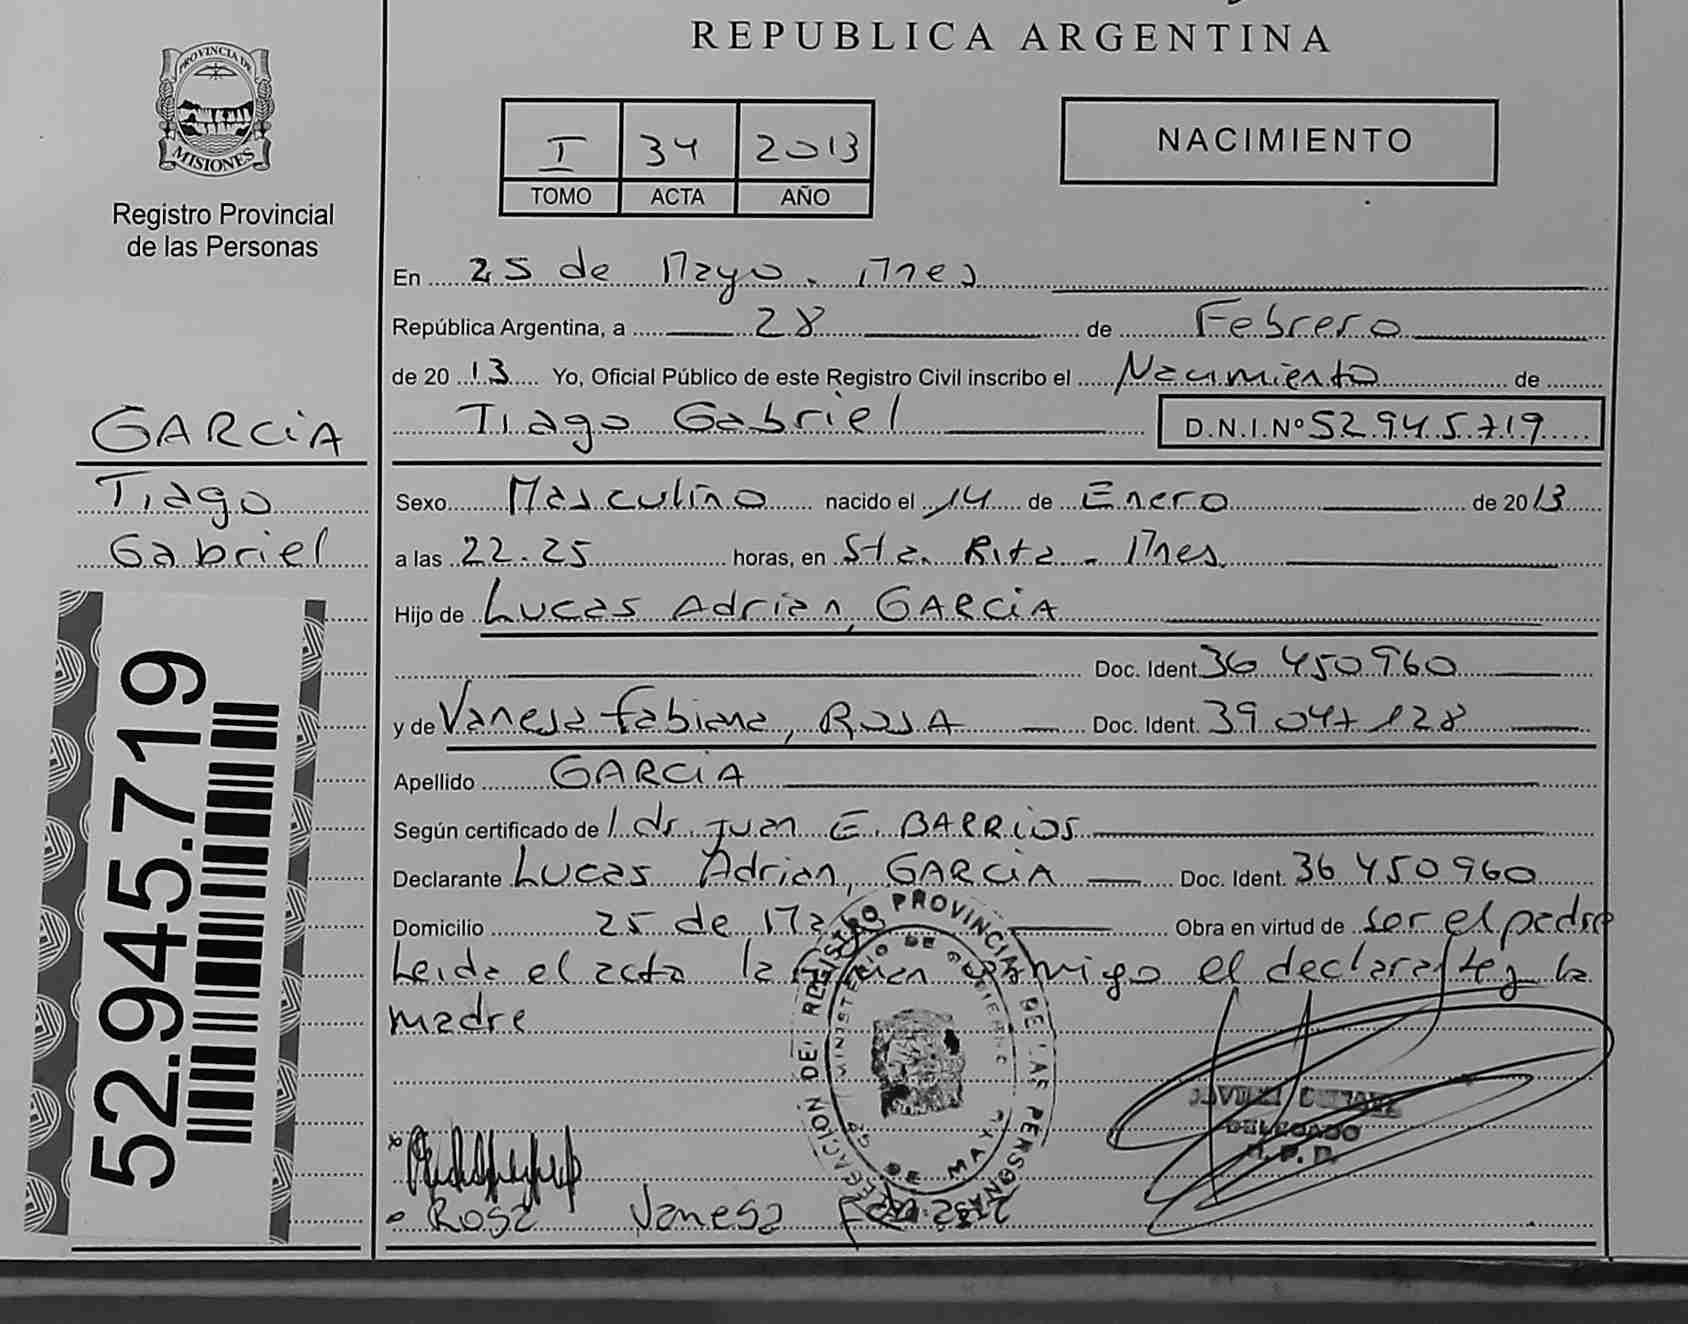 REPUBLICA ARGENTINA
PROVINCIA DE
MISIONES
Registro Provincial
de las Personas
I 34 2013
TOMO ACTA AÑO
NACIMIENTO
En 25 de Mayo. Mnes
República Argentina, a 28 de Febrero
de 2013 Yo, Oficial Público de este Registro Civil inscribo el Nacimiento de
Tiago Gabriel D.N.I.Nº 52.945.719
GARCIA
Tiago
Gabriel
Sexo Masculino nacido el 14 de Enero de 2013
a las 22.25 horas, en Sta. Rita - Mnes.
Hijo de Lucas Adrian, GARCIA
Doc. Ident. 36 450 960
y de Vanesa Fabiana, ROSA Doc. Ident. 39.047 128
Apellido GARCIA
Según certificado de dr. Juan E. BARRIOS
Declarante Lucas Adrian, GARCIA Doc. Ident. 36 450 960
Domicilio 25 de Obra en virtud de ser el padre
Leida el acta la conmigo el declarante y la
madre
52.945.719
DELEGACION DEL REGISTRO PROVINCIAL DE LAS PERSONAS
MINISTERIO DE GOBIERNO
25 DE MAYO
DELEGADO
Rosa Vanesa